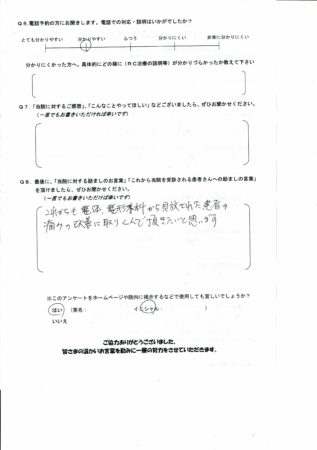 Q6.電話予約の方にお聞きします。電話での対応・説明はいかがでしたか？
とても分かりやすい 分かりやすい ふつう 分かりにくい 非常に分かりにくい
分かりにくかった方へ。具体的にどの様に（RC治療の説明等）が分かりづらかったか教えて下さい
Q7.「当院に対するご感想」、「こんなことやってほしい」などございましたら、ぜひお聞かせください。
（一言でもお書きいただければ幸いです）
Q8.最後に、「当院に対する励ましのお言葉」「これから当院を受診される患者さんへの励ましの言葉」
を頂けましたら、ぜひお聞かせください。
（一言でもお書きいただければ幸いです）
これからも整体、整形外科から見放された患者の
痛みの改善に取りくんで頂きたいと思います
※このアンケートをホームページや院内に掲示するなどで使用しても宜しいでしょうか？
はい （実名： イニシャル： ）
いいえ
ご協力ありがとうございました。
皆さまの温かいお言葉を励みに一層の努力をさせていただきます。